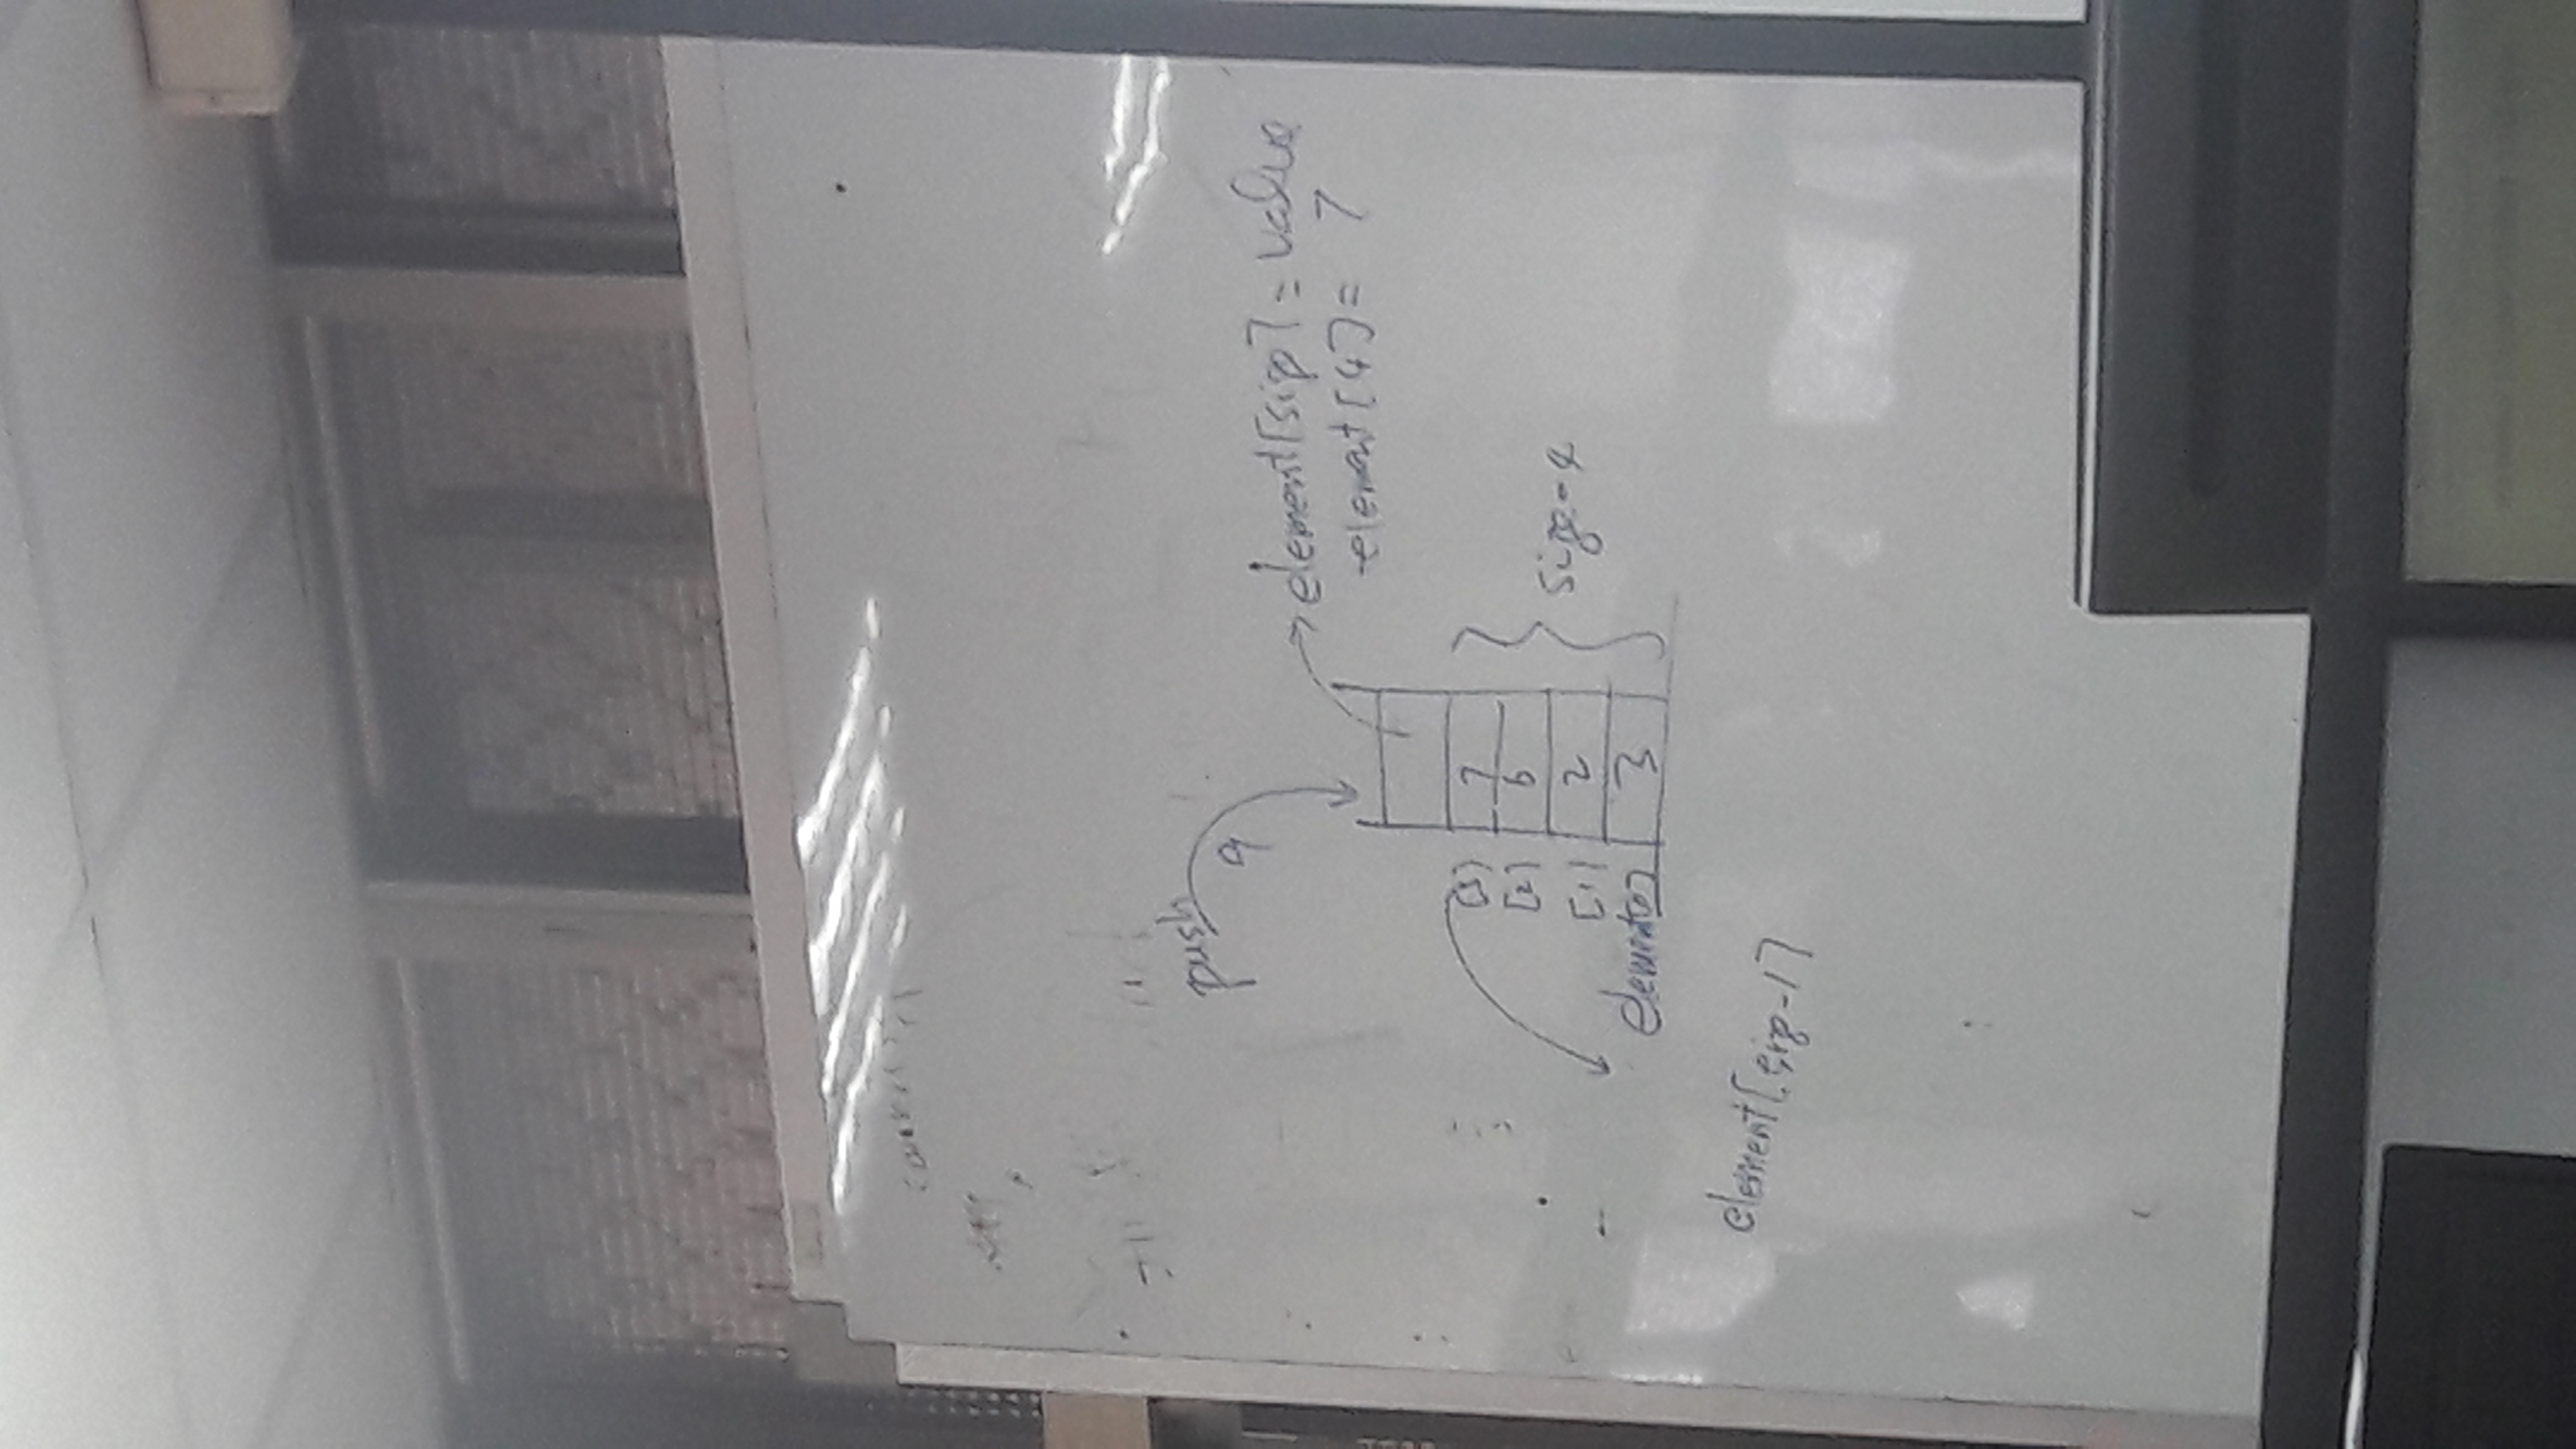 push
9
element[size] = value
element[4] = 7
[3] 7
[2] 6
[1] 2
element[0] 3
size=4
element[size-1]